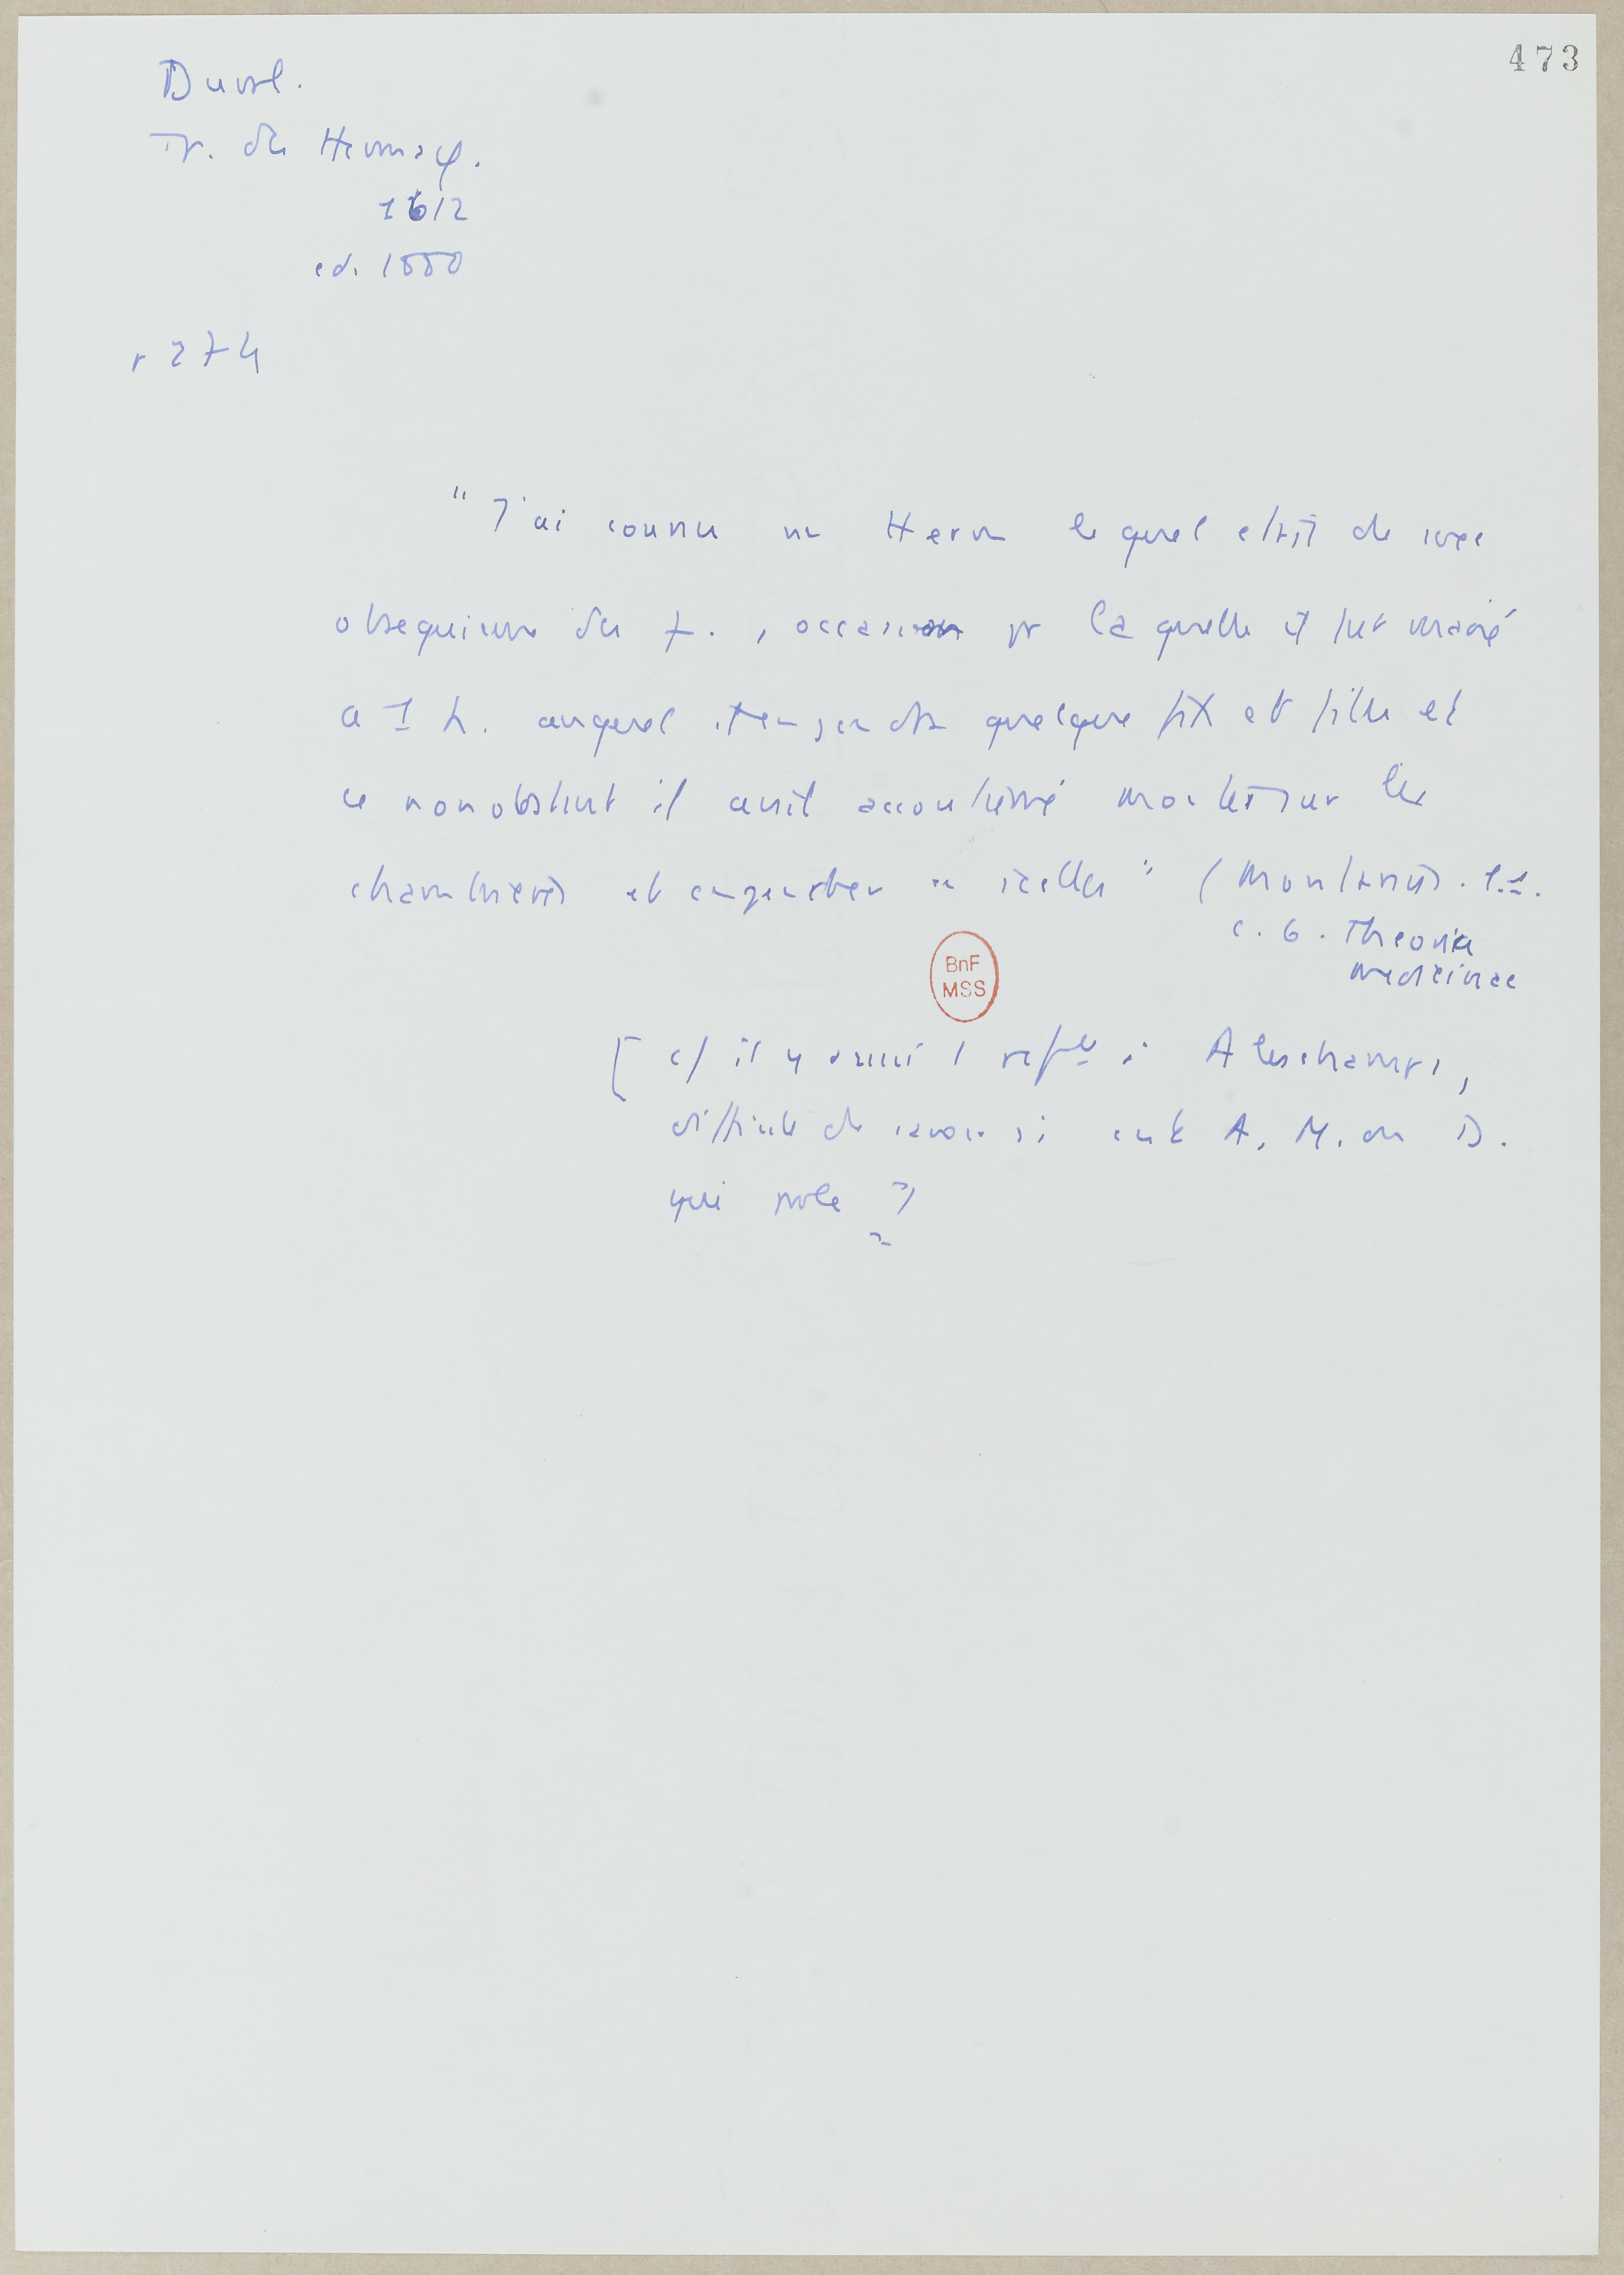 473
Duval.
Tr. des Hermaφ.
1612
ed. 1880
p 274
"J'ai connu un Herm lequel estait de sexe
obsequieux des f., occasion pr laquelle il fut marié
a 1 h. auquel il engendra quelque fix et filles et
ce nonobstant il avait accoutumé monter sur les
chambrières et engendrer en icelles" (Montanus. l.1.
c. 6. Theoria
medicinae
[ cf il y aussi 1 refce à Aleschamps,
difficile de savoir si c'est A, M. ou D.
qui parle ?
BnF
MSS